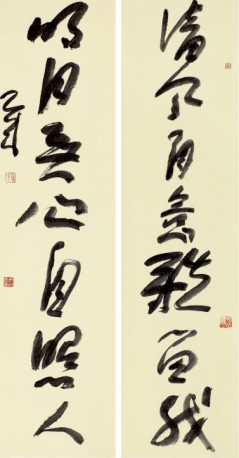 清风有意難留我
明月無心自照人